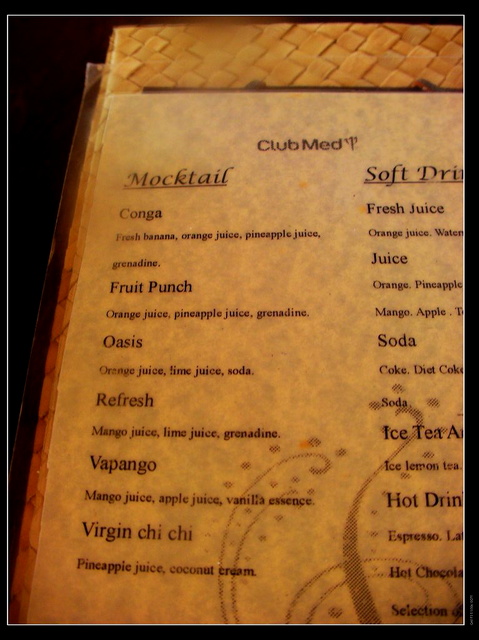 Club Med
Mocktail
Conga
Fresh banana, orange juice, pineapple juice,
grenadine.
Fruit Punch
Orange juice, pineapple juice, grenadine.
Oasis
Orange juice, lime juice, soda.
Refresh
Mango juice, lime juice, grenadine.
Vapango
Mango juice, apple juice, vanilla essence.
Virgin chi chi
Pineapple juice, coconut cream.
Soft Drin
Fresh Juice
Orange juice. Water
Juice
Orange. Pineapple
Mango. Apple . T
Soda
Coke. Diet Coke
Soda.
Ice Tea A
Ice lemon tea.
Hot Drin
Espresso. Lat
Hot Chocola
Selection